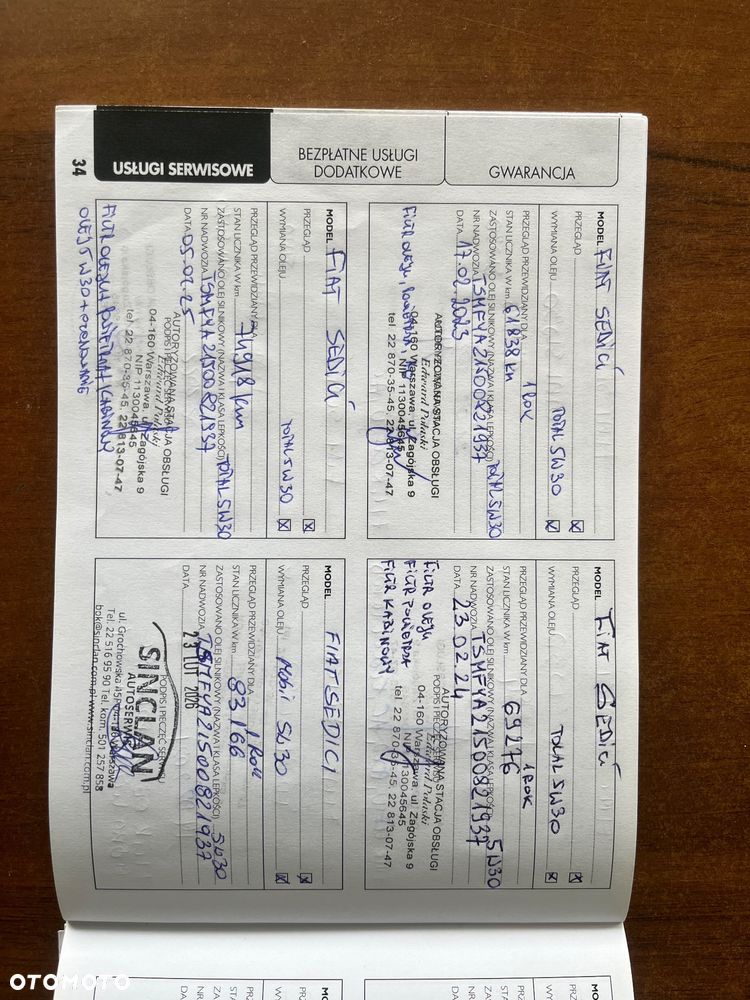 34
USŁUGI SERWISOWE
BEZPŁATNE USŁUGI
DODATKOWE
GWARANCJA
MODEL FIAT SEDICI
PRZEGLĄD
WYMIANA OLEJU TOTAL 5W30
PRZEGLĄD PRZEWIDZIANY DLA 1 ROK
STAN LICZNIKA W km 61838 km
ZASTOSOWANO OLEJ SILNIKOWY (NAZWA I KLASA LEPKOŚCI) TOTAL 5W30
NR NADWOZIA TSMFYA21S00821937
DATA 17.02.2023
AUTORYZOWANA STACJA OBSŁUGI
Edward Połaski
04-160 Warszawa, ul. Zagójska 9
NIP 1130045645
tel. 22 870-35-45, 22 813-07-47
FILTR OLEJU, POWIETRZA
MODEL FIAT SEDICI
PRZEGLĄD
WYMIANA OLEJU TOTAL 5W30
PRZEGLĄD PRZEWIDZIANY DLA 1 ROK
STAN LICZNIKA W km 69276
ZASTOSOWANO OLEJ SILNIKOWY (NAZWA I KLASA LEPKOŚCI) 5W30
NR NADWOZIA TSMFYA21S00821937
DATA 23 02 24
PODPIS I PIECZĘĆ
AUTORYZOWANA STACJA OBSŁUGI
Edward Połaski
04-160 Warszawa, ul. Zagójska 9
NIP 1130045645
tel. 22 870-35-45, 22 813-07-47
FILTR OLEJU
FILTR POWIETRZA
FILTR KABINOWY
MODEL FIAT SEDICI
PRZEGLĄD
WYMIANA OLEJU TOTAL 5W30
PRZEGLĄD PRZEWIDZIANY DLA
STAN LICZNIKA W km 74918 km
ZASTOSOWANO OLEJ SILNIKOWY (NAZWA I KLASA LEPKOŚCI) TOTAL 5W30
NR NADWOZIA TSMFYA21S00821937
DATA 05.02.25
AUTORYZOWANA STACJA OBSŁUGI
Edward Połaski
04-160 Warszawa, ul. Zagójska 9
NIP 1130045645
tel. 22 870-35-45, 22 813-07-47
FILTR OLEJU + POWIETRZA + KABINOWY
OLEJ 5W30
MODEL FIAT SEDICI
PRZEGLĄD
WYMIANA OLEJU Mobil 5W30
PRZEGLĄD PRZEWIDZIANY DLA 1 ROK
STAN LICZNIKA W km 83166
ZASTOSOWANO OLEJ SILNIKOWY (NAZWA I KLASA LEPKOŚCI) 5W30
NR NADWOZIA TSMFYA21S00821937
DATA 23 LUT 2026
PODPIS I PIECZĘĆ SERWISU
SINCLAN
AUTOSERWIS
ul. Grochowska 45F, 04-186 Warszawa
Tel. 22 516 95 90 Tel. kom. 501 257 858
bok@sinclan.com.pl www.sinclan.com.pl
MODEL
PRZEGLĄD
WYM
PRZE
STA
ZAS
NR N
DATA
MODEL
PRZEGLĄD
WYM
PRZ
STA
ZAS
NR
DATA
OTOMOTO